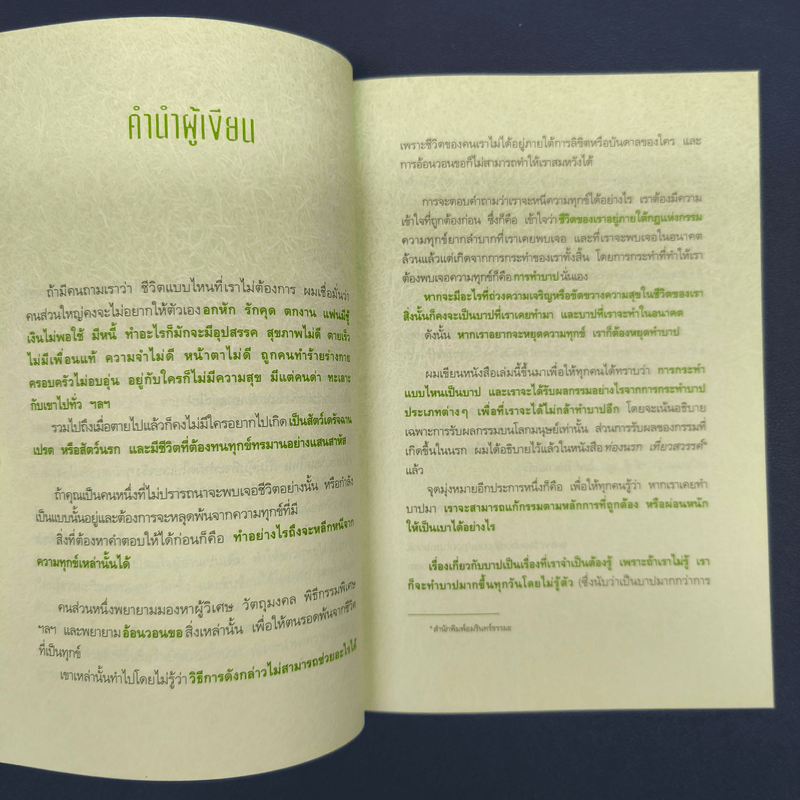 คำนำผู้เขียน
ถ้ามีคนถามเราว่า ชีวิตแบบไหนที่เราไม่ต้องการ ผมเชื่อมั่นว่า
คนส่วนใหญ่คงจะไม่อยากให้ตัวเองอกหัก รักคุด ตกงาน แฟนมีชู้
เงินไม่พอใช้ มีหนี้ ทำอะไรก็มักจะมีอุปสรรค สุขภาพไม่ดี ตายเร็ว
ไม่มีเพื่อนแท้ ความจำไม่ดี หน้าตาไม่ดี ถูกคนทำร้ายร่างกาย
ครอบครัวไม่อบอุ่น อยู่กับใครก็ไม่มีความสุข มีแต่คนด่า ทะเลาะ
กับเขาไปทั่ว ฯลฯ
รวมไปถึงเมื่อตายไปแล้วก็คงไม่มีใครอยากไปเกิดเป็นสัตว์เดรัจฉาน
เปรต หรือสัตว์นรก และมีชีวิตที่ต้องทนทุกข์ทรมานอย่างแสนสาหัส
ถ้าคุณเป็นคนหนึ่งที่ไม่ปรารถนาจะพบเจอชีวิตอย่างนั้น หรือกำลัง
เป็นแบบนั้นอยู่และต้องการจะหลุดพ้นจากความทุกข์ที่มี
สิ่งที่ต้องหาคำตอบให้ได้ก่อนก็คือ ทำอย่างไรถึงจะหลีกหนีจาก
ความทุกข์เหล่านั้นได้
คนส่วนหนึ่งพยายามมองหาผู้วิเศษ วัตถุมงคล พิธีกรรมพิเศษ
ฯลฯ และพยายามอ้อนวอนขอสิ่งเหล่านั้น เพื่อให้ตนรอดพ้นจากชีวิต
ที่เป็นทุกข์
เขาเหล่านั้นทำไปโดยไม่รู้ว่าวิธีการดังกล่าวไม่สามารถช่วยอะไรได้
เพราะชีวิตของคนเราไม่ได้อยู่ภายใต้การลิขิตหรือบันดาลของใคร และ
การอ้อนวอนขอก็ไม่สามารถทำให้เราสมหวังได้
การจะตอบคำถามว่าเราจะหนีความทุกข์ได้อย่างไร เราต้องมีความ
เข้าใจที่ถูกต้องก่อน ซึ่งก็คือ เข้าใจว่าชีวิตของเราอยู่ภายใต้กฎแห่งกรรม
ความทุกข์ยากลำบากที่เราเคยพบเจอ และที่เราจะพบเจอในอนาคต
ล้วนแล้วแต่เกิดจากการกระทำของเราทั้งสิ้น โดยการกระทำที่ทำให้เรา
ต้องพบเจอความทุกข์ก็คือการทำบาปนั่นเอง
หากจะมีอะไรที่ถ่วงความเจริญหรือขัดขวางความสุขในชีวิตของเรา
สิ่งนั้นก็คงจะเป็นบาปที่เราเคยทำมา และบาปที่เราจะทำในอนาคต
ดังนั้น หากเราอยากจะหยุดความทุกข์ เราก็ต้องหยุดทำบาป
ผมเขียนหนังสือเล่มนี้ขึ้นมาเพื่อให้ทุกคนได้ทราบว่า การกระทำ
แบบไหนเป็นบาป และเราจะได้รับผลกรรมอย่างไรจากการกระทำบาป
ประเภทต่างๆ เพื่อที่เราจะได้ไม่กล้าทำบาปอีก โดยจะเน้นอธิบาย
เฉพาะการรับผลกรรมบนโลกมนุษย์เท่านั้น ส่วนการรับผลของกรรมที่
เกิดขึ้นในนรก ผมได้อธิบายไว้แล้วในหนังสือท่องนรก เที่ยวสวรรค์*
แล้ว
จุดมุ่งหมายอีกประการหนึ่งก็คือ เพื่อให้ทุกคนรู้ว่า หากเราเคยทำ
บาปมา เราจะสามารถแก้กรรมตามหลักการที่ถูกต้อง หรือผ่อนหนัก
ให้เป็นเบาได้อย่างไร
เรื่องเกี่ยวกับบาปเป็นเรื่องที่เราจำเป็นต้องรู้ เพราะถ้าเราไม่รู้ เรา
ก็จะทำบาปมากขึ้นทุกวันโดยไม่รู้ตัว (ซึ่งนับว่าเป็นบาปมากกว่าการ
*สำนักพิมพ์อมรินทร์ธรรมะ